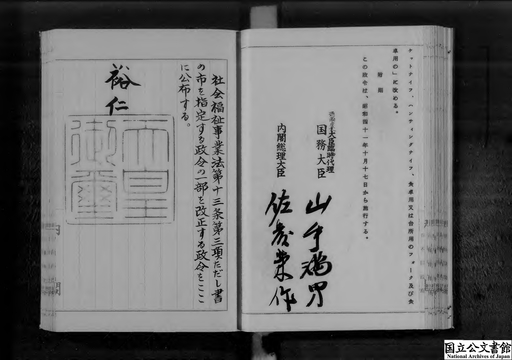 ケットナイフ、ハンティングナイフ、食卓用又は台所用のフォーク及び食
卓用の」に改める。
附 則
この政令は、昭和四十一年十月十七日から施行する。
大臣臨時代理
国務大臣
内閣総理大臣 佐藤栄作
社会福祉事業法第十三条第三項ただし書
の市を指定する政令の一部を改正する政令をここ
に公布する。
裕仁
天皇
御璽
国立公文書館
National Archives of Japan